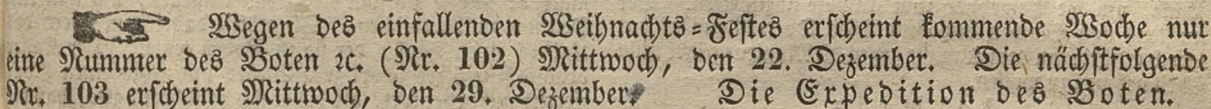 ☛ Wegen des einfallenden Weihnachts-Festes erscheint kommende Woche nur
eine Nummer des Boten ꝛc. (Nr. 102) Mittwoch, den 22. Dezember. Die nächstfolgende
Nr. 103 erscheint Mittwoch, den 29. Dezember. Die Expedition des Boten.